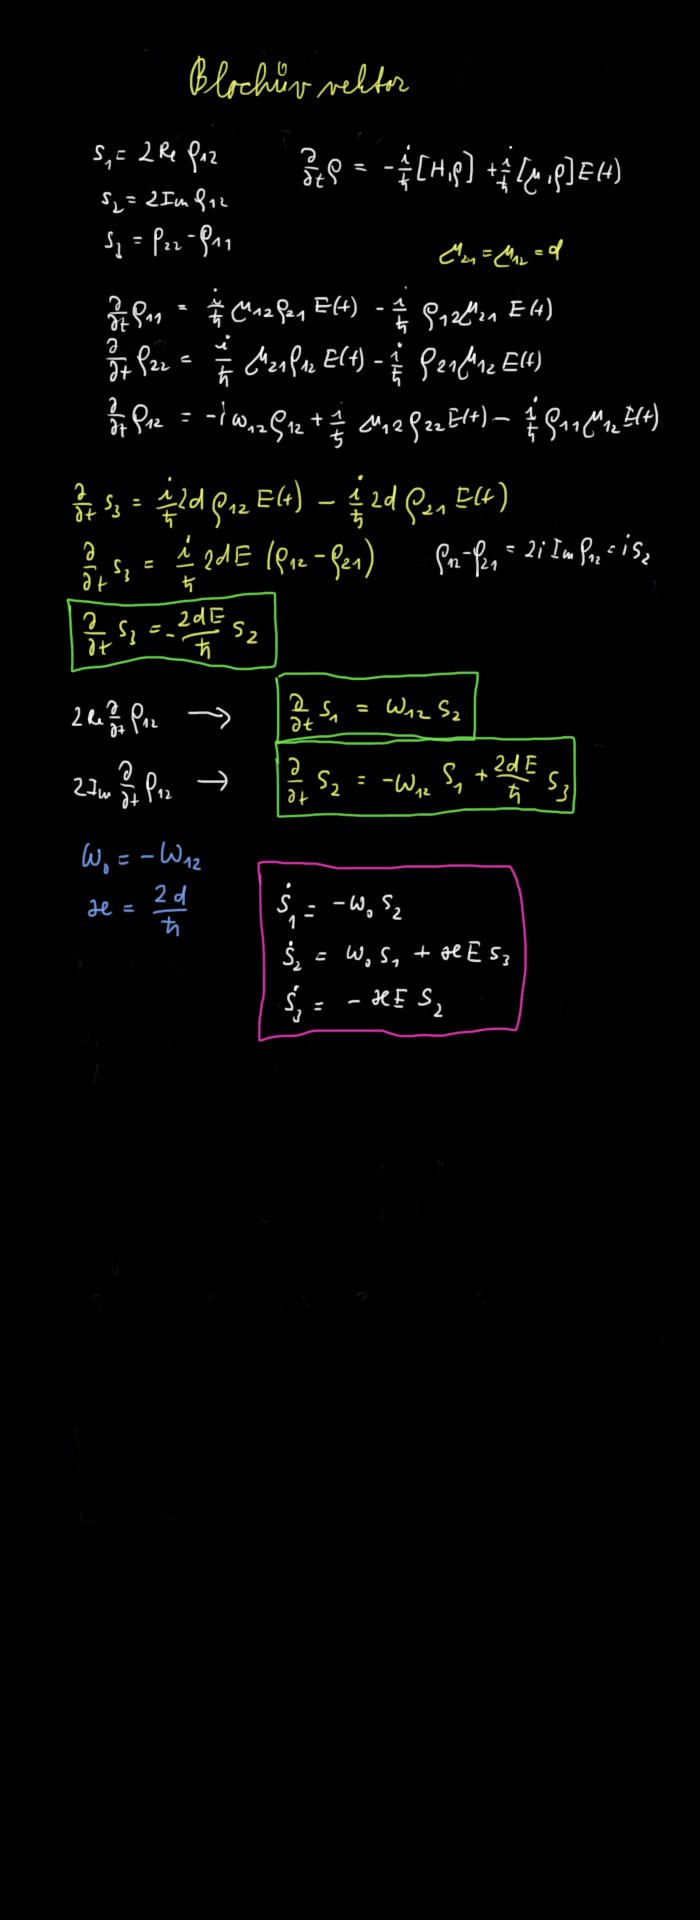 Blochův vektor
s₁ = 2 Re ρ₁₂
∂/∂t ρ = -i/ħ [H,ρ] + i/ħ [μ,ρ] E(t)
s₂ = 2 Im ρ₁₂
s₃ = ρ₂₂ - ρ₁₁
μ₂₁ = μ₁₂ = d
∂/∂t ρ₁₁ = i/ħ μ₁₂ρ₂₁ E(t) - i/ħ ρ₁₂μ₂₁ E(t)
∂/∂t ρ₂₂ = i/ħ μ₂₁ρ₁₂ E(t) - i/ħ ρ₂₁μ₁₂ E(t)
∂/∂t ρ₁₂ = -i ω₁₂ρ₁₂ + i/ħ μ₁₂ρ₂₂ E(t) - i/ħ ρ₁₁μ₁₂ E(t)
∂/∂t s₃ = i/ħ 2d ρ₁₂ E(t) - i/ħ 2d ρ₂₁ E(t)
∂/∂t s₃ = i/ħ 2dE (ρ₁₂ - ρ₂₁)
ρ₁₂ - ρ₂₁ = 2i Im ρ₁₂ = i s₂
∂/∂t s₃ = - 2dE/ħ s₂
2 Re ∂/∂t ρ₁₂ →
∂/∂t s₁ = ω₁₂ s₂
2 Im ∂/∂t ρ₁₂ →
∂/∂t s₂ = -ω₁₂ s₁ + 2dE/ħ s₃
ω₀ = -ω₁₂
æ = 2d/ħ
ṡ₁ = -ω₀ s₂
ṡ₂ = ω₀ s₁ + æE s₃
ṡ₃ = - æE s₂